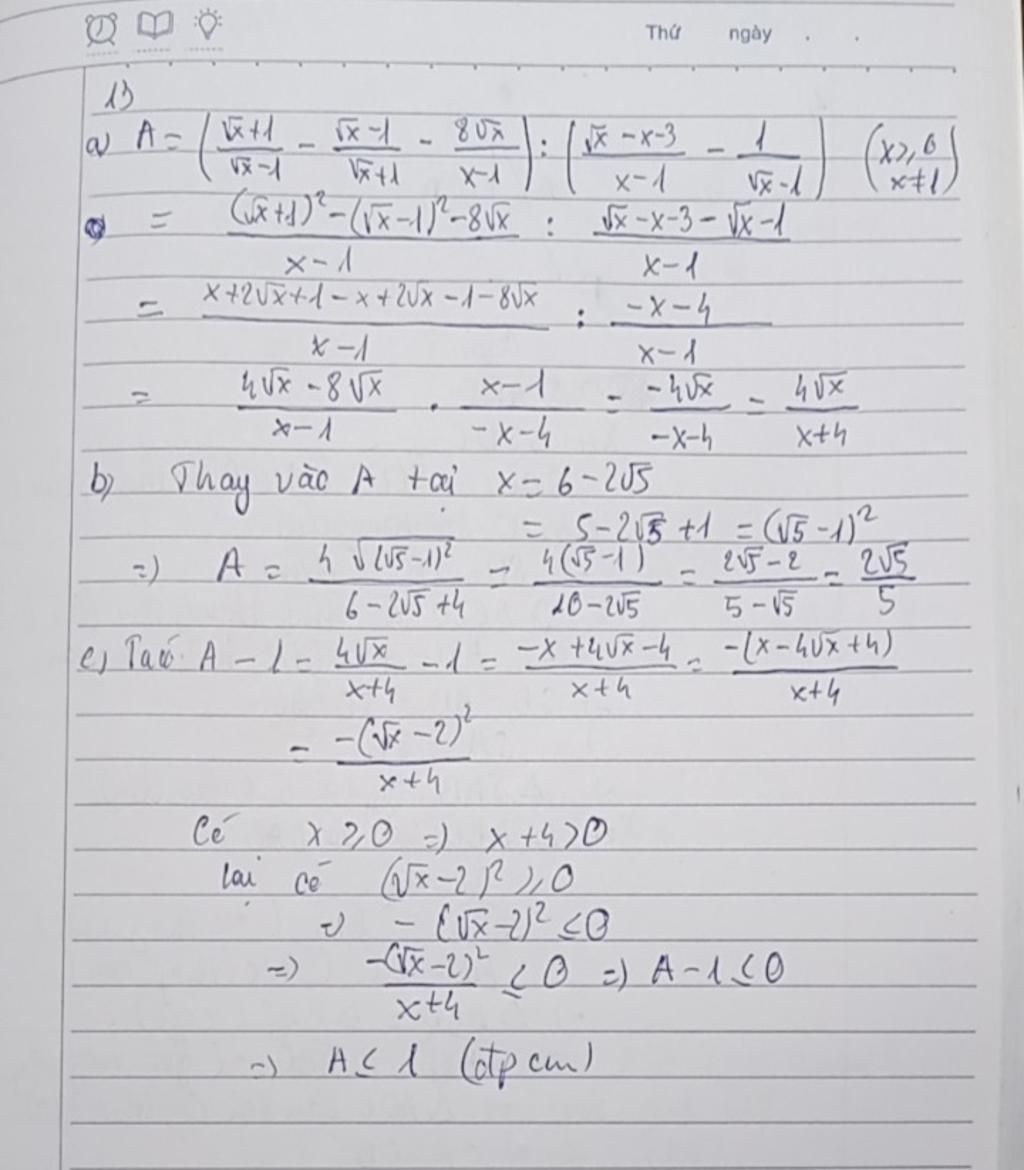 Thứ ngày . .
1)
a) A = (√x+1/√x-1 - √x-1/√x+1 - 8√x/x-1) : (√x-x-3/x-1 - 1/√x-1) (x≥0 x≠1)
= (√x+1)²-(√x-1)²-8√x/x-1 : √x-x-3-√x-1/x-1
= x+2√x+1-x+2√x-1-8√x/x-1 : -x-4/x-1
= 4√x-8√x/x-1 . x-1/-x-4 = -4√x/-x-4 = 4√x/x+4
b) Thay vào A tại x = 6-2√5
= 5-2√5+1 = (√5-1)²
=) A = 4√(√5-1)²/6-2√5+4 = 4(√5-1)/10-2√5 = 2√5-2/5-√5 = 2√5/5
c) Ta có A-1 = 4√x/x+4 - 1 = -x+4√x-4/x+4 = -(x-4√x+4)/x+4
= -(√x-2)²/x+4
Có x≥0 =) x+4>0
lại có (√x-2)²≥0
=) -(√x-2)²≤0
=) -(√x-2)²/x+4 ≤ 0 =) A-1≤0
=) A≤1 (đpcm)